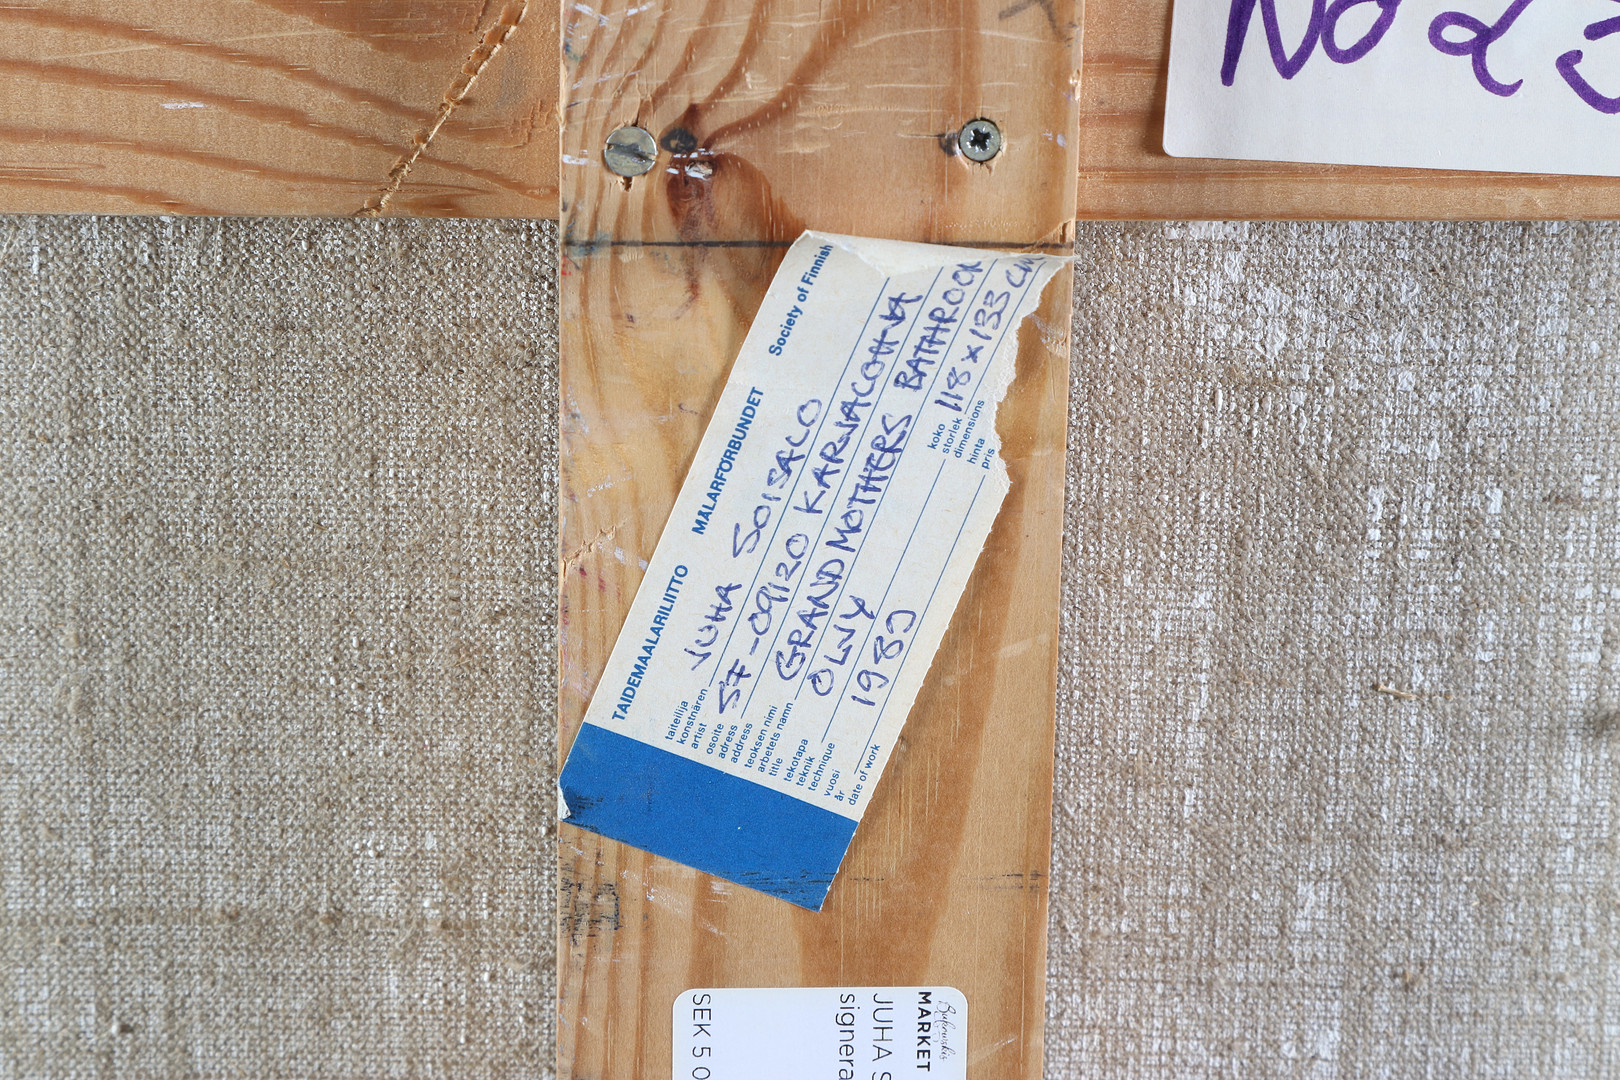 No 23
TAIDEMAALARILIITTO MÅLARFÖRBUNDET Society of Finnish
taiteilija
konstnären
artist
JUHA SOISALO
osoite
adress
address
57-09120 KARJACOHJA
teoksen nimi
arbetets namn
title
GRANDMOTHERS BATHROOM
tekotapa
teknik
technique
OLJY
koko
storlek
dimensions
118 x 133 CM
vuosi
år
date of work
1989
hinta
pris
Bukowskis
MARKET
JUHA S
signera
SEK 5 0